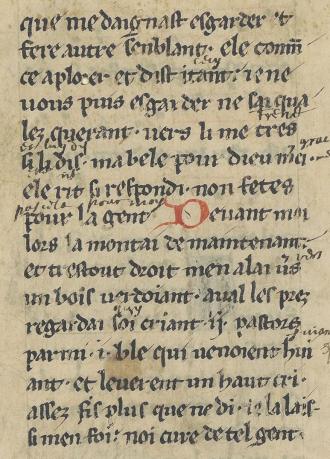 que me daignast esgarder et
fere autre senblant. ele com̄
ce a plorer et dist itant. ie ne
uous puis esgarder ne sai qua
lez querant. uers li me tres
si li dis. ma bele pour dieu mci.
ele rit si respondi. non fetes
pour la gent Deuant moi
lors la montai de maintenant.
et trestout droit men alai u͛s
un bois uerdoiant. aual les prez
regardai soi criant .ii. pastors
parmi .i. ble qui uenoient hui
ant. et leuerent un haut cri.
assez fis plus que ne di. ie la lais
si men foi. noi cure de tel gent.